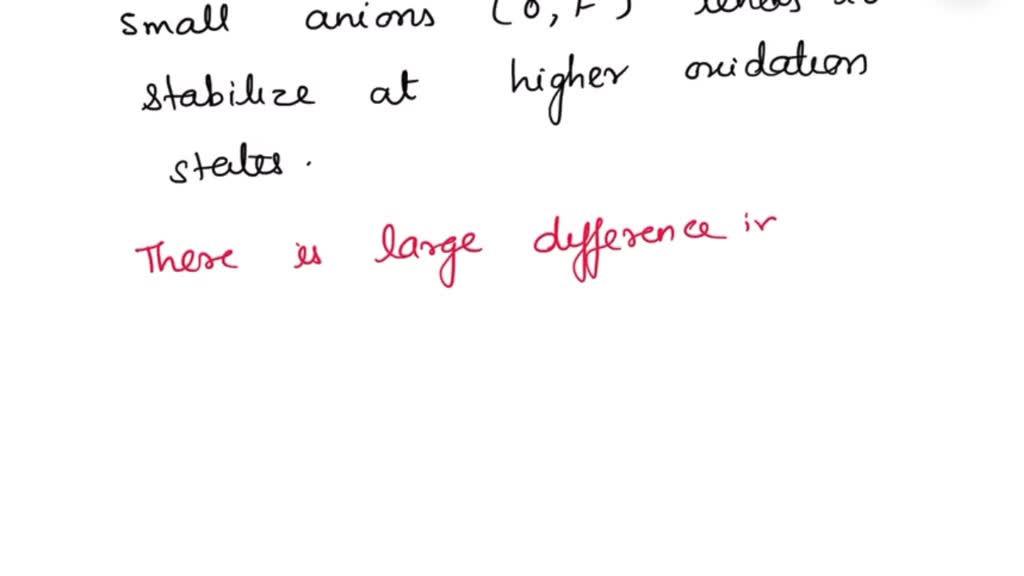 small anions (O, F)
stabilize at higher oxidation
states.
There is large difference in